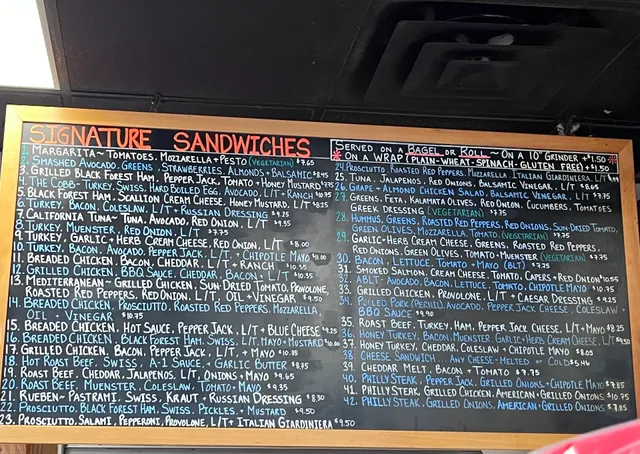 SIGNATURE SANDWICHES
1. MARGARITA~ TOMATOES, MOZZARELLA + PESTO (VEGETARIAN) $7.65
2. SMASHED AVOCADO, GREENS, STRAWBERRIES, ALMONDS + BALSAMIC $8.45
3. GRILLED BLACK FOREST HAM, PEPPER JACK, TOMATO + HONEY MUSTARD $7.75
4. THE COBB- TURKEY, SWISS, HARD BOILED EGG, AVOCADO, L/T + RANCH
5. BLACK FOREST HAM, SCALLION CREAM CHEESE, HONEY MUSTARD, L/T
6. TURKEY, BACON, COLESLAW, L/T + RUSSIAN DRESSING $9.25
7. CALIFORNIA TUNA~ TUNA, AVOCADO, RED ONION, L/T
8. TURKEY, MUENSTER, RED ONION, L/T $7.75
9. TURKEY, GARLIC + HERB CREAM CHEESE, RED ONION, L/T $8.00
10. TURKEY, BACON, AVOCADO, PEPPER JACK, L/T + CHIPOTLE MAYO
11. BREADED CHICKEN, BACON, CHEDDAR, L/T + RANCH $10.55
12. GRILLED CHICKEN, BBQ SAUCE, CHEDDAR, BACON, L/T $10.55
13. MEDITERRANEAN~ GRILLED CHICKEN, SUN-DRIED TOMATO, PROVOLONE,
ROASTED PEPPERS, RED ONION, L/T, OIL + VINEGAR $9.50
14. BREADED CHICKEN, PROSCIUTTO, ROASTED RED PEPPERS, MOZZARELLA,
OIL + VINEGAR $10.75
15. BREADED CHICKEN, HOT SAUCE, PEPPER JACK, L/T + BLUE CHEESE $9.25
16. BREADED CHICKEN, BLACK FOREST HAM, SWISS, L/T, MAYO + MUSTARD
17. GRILLED CHICKEN, BACON, PEPPER JACK, L/T + MAYO
18. HOT ROAST BEEF, SWISS, A-1 SAUCE + GARLIC BUTTER $8.35
19. ROAST BEEF, CHEDDAR, JALAPENOS, L/T, ONIONS + MAYO $9.65
20. ROAST BEEF, MUENSTER, COLESLAW, TOMATO + MAYO $9.35
21. RUEBEN~ PASTRAMI, SWISS, KRAUT + RUSSIAN DRESSING $8.30
22. PROSCIUTTO, BLACK FOREST HAM, SWISS, PICKLES + MUSTARD $9.50
23. PROSCIUTTO, SALAMI, PEPPERONI, PROVOLONE, L/T + ITALIAN GIARDINIERA $9.50
SERVED ON A BAGEL OR ROLL ~ ON A 10" GRINDER +$1.50
* ON A WRAP (PLAIN-WHEAT-SPINACH-GLUTEN FREE) +$1.50 *
24. PROSCIUTTO, ROASTED RED PEPPERS, MOZZARELLA, ITALIAN GIARDINIERA, L/T
25. TUNA, JALAPENOS, RED ONIONS, BALSAMIC VINEGAR, L/T $8.65
26. GRAPE + ALMOND CHICKEN SALAD, BALSAMIC VINEGAR, L/T $7.75
27. GREENS, FETA, KALAMATA OLIVES, RED ONION, CUCUMBERS, TOMATOES
GREEK DRESSING (VEGETARIAN) $7.75
28. HUMMUS, GREENS, ROASTED RED PEPPERS, RED ONIONS, SUN-DRIED TOMATO,
GREEN OLIVES, MOZZARELLA, TOMATO (VEGETARIAN) $7.75
29. GARLIC + HERB CREAM CHEESE, GREENS, ROASTED RED PEPPERS,
RED ONIONS, GREEN OLIVES, TOMATO + MUENSTER (VEGETARIAN) $7.75
30. BACON, LETTUCE, TOMATO + MAYO (BLT) $7.25
31. SMOKED SALMON, CREAM CHEESE, TOMATO, CAPERS + RED ONION $10.95
32. ABLT~ AVOCADO, BACON, LETTUCE, TOMATO, CHIPOTLE MAYO $10.75
33. GRILLED CHICKEN, PROVOLONE, L/T + CAESAR DRESSING $9.25
34. PULLED PORK (PERNIL), AVOCADO, PEPPER JACK CHEESE, COLESLAW +
BBQ SAUCE $9.90
35. ROAST BEEF, TURKEY, HAM, PEPPER JACK CHEESE, L/T + MAYO $8.25
36. HONEY TURKEY, BACON, MUENSTER, GARLIC + HERB CREAM CHEESE, L/T
37. HONEY TURKEY, CHEDDAR, COLESLAW + CHIPOTLE MAYO $8.05
38. CHEESE SANDWICH... ANY CHEESE - MELTED OR COLD $5.46
39. CHEDDAR MELT, BACON + TOMATO $7.75
40. PHILLY STEAK, PEPPER JACK, GRILLED ONIONS + CHIPOTLE MAYO $7.85
41. PHILLY STEAK, GRILLED CHICKEN, AMERICAN + GRILLED ONIONS $10.75
42. PHILLY STEAK, GRILLED ONIONS, AMERICAN + GRILLED ONIONS $7.85